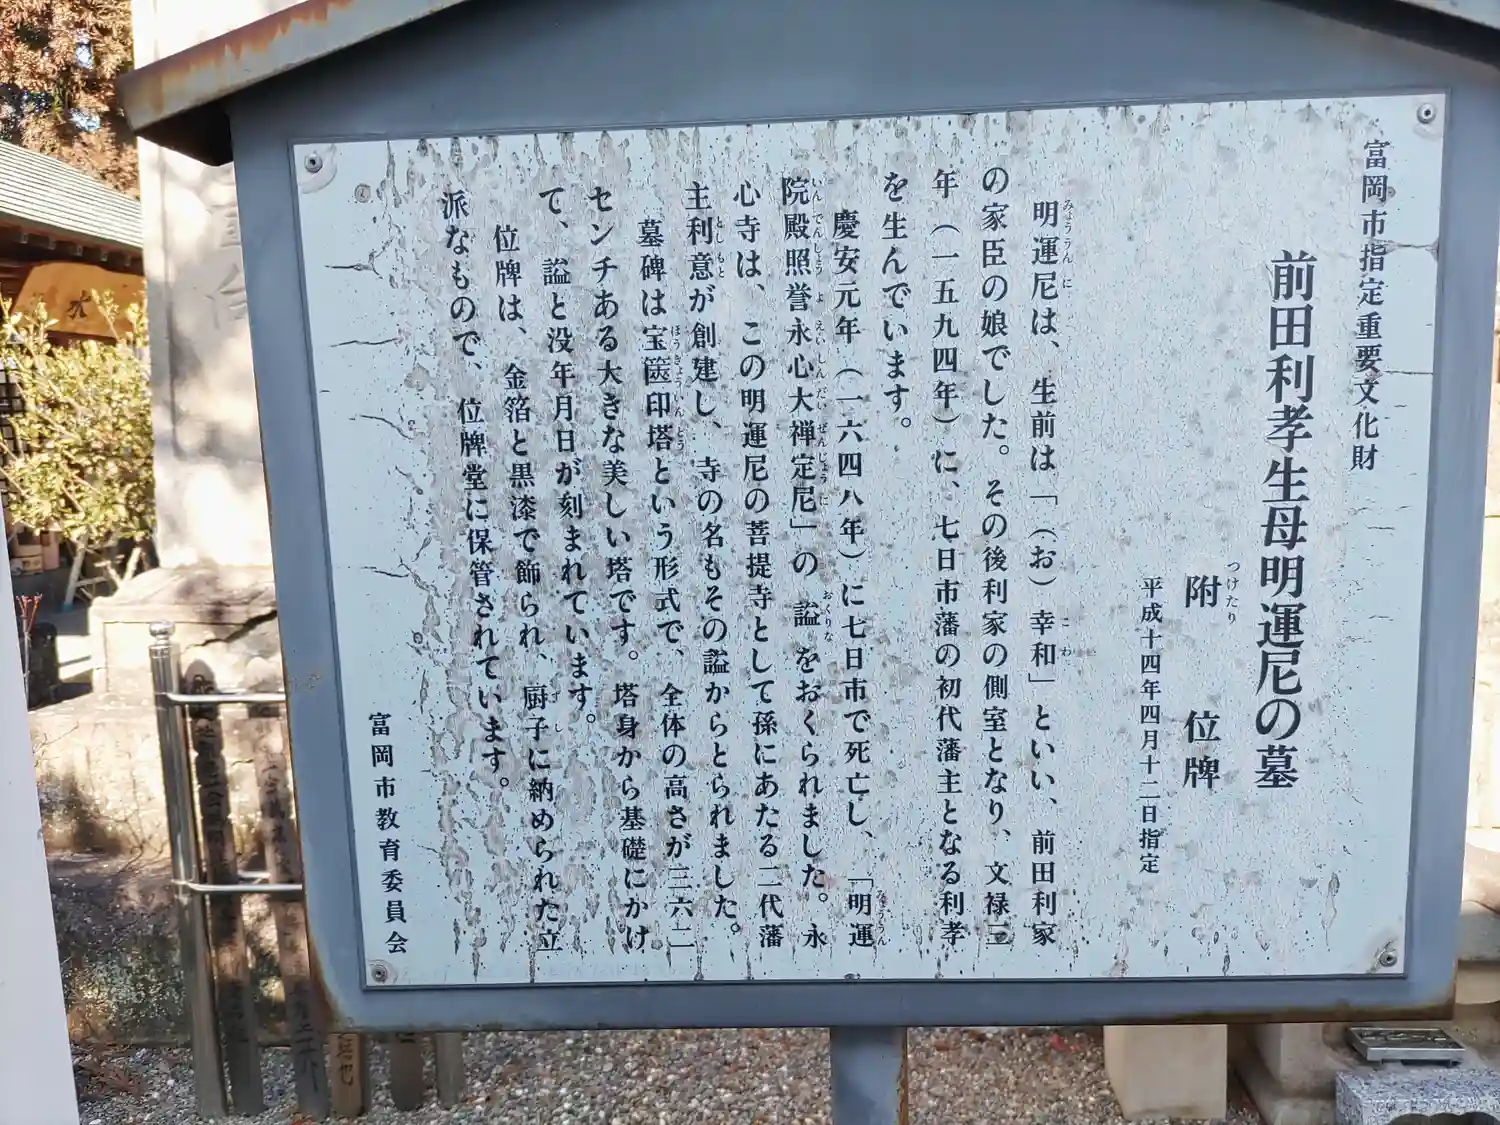 富岡市指定重要文化財
前田利孝生母明運尼の墓
附　位牌
つけたり
平成十四年四月十二日指定
明運尼は、生前は「（お）幸和」といい、前田利家
みょううんに
こわ
の家臣の娘でした。その後利家の側室となり、文禄三
年（一五九四年）に、七日市藩の初代藩主となる利孝
を生んでいます。
慶安元年（一六四八年）に七日市で死亡し、「明運
みょううん
院殿照誉永心大禅定尼」の諡をおくられました。永
いんでんしょうよえいしんだいぜんじょうに
おくりな
心寺は、この明運尼の菩提寺として孫にあたる二代藩
主利意が創建し、寺の名もその諡からとられました。
としもと
墓碑は宝篋印塔という形式で、全体の高さが三六二
ほうきょういんとう
センチある大きな美しい塔です。塔身から基礎にかけ
て、諡と没年月日が刻まれています。
位牌は、金箔と黒漆で飾られ、厨子に納められた立
ずし
派なもので、位牌堂に保管されています。
富岡市教育委員会